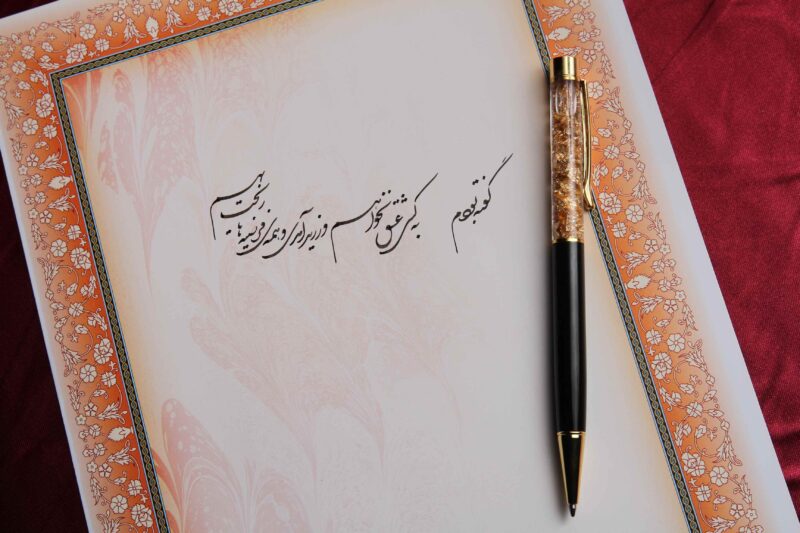 گفته بودم به کسی عشق نخواهم ورزید آمدی و همه‌ی فرضیه‌ها ریخت بهم